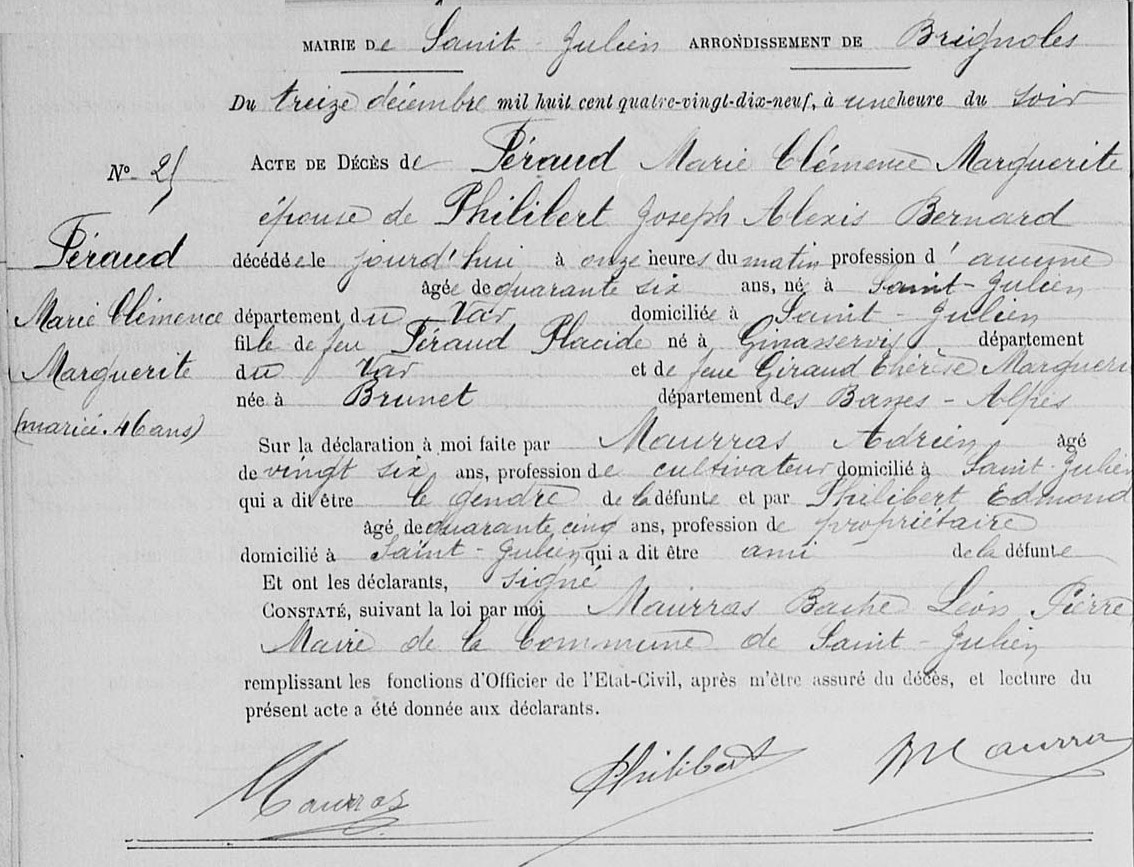 MAIRIE De Saint-Julien ARRONDISSEMENT DE Brignoles
Du treize décembre mil huit cent quatre-vingt-dix-neuf, à une heure du soir
ACTE DE DÉCÈS de Féraud Marie Clémence Marguerite
épouse de Philibert Joseph Alexis Bernard
décédée le jourd'hui à onze heures du matin profession d'aucune
âgée de quarante six ans, né à Saint-Julien
département du Var domiciliée à Saint-Julien
fille de feu Féraud Placide né à Ginasservis, département
du Var et de feue Giraud Thérèse Margueri
née à Brunet département des Basses-Alpes
Sur la déclaration à moi faite par Maurras Adrien, âgé
de vingt six, ans, profession de cultivateur domicilié à Saint-Julien
qui a dit être le gendre de la défunte et par Philibert Edmond
âgé de quarante cinq ans, profession de propriétaire
domicilié à Saint-Julien qui a dit être ami de la défunte
Et ont les déclarants, signé
CONSTATÉ, suivant la loi par moi Maurras Léon Pierre
Maire de la Commune de Saint-Julien
remplissant les fonctions d'Officier de l'Etat-Civil, après m'être assuré du décès, et lecture du
présent acte a été donnée aux déclarants.
Maurras Philibert Maurra
N°
Féraud
Marie Clémence
Marguerite
(mariée. 46 ans)